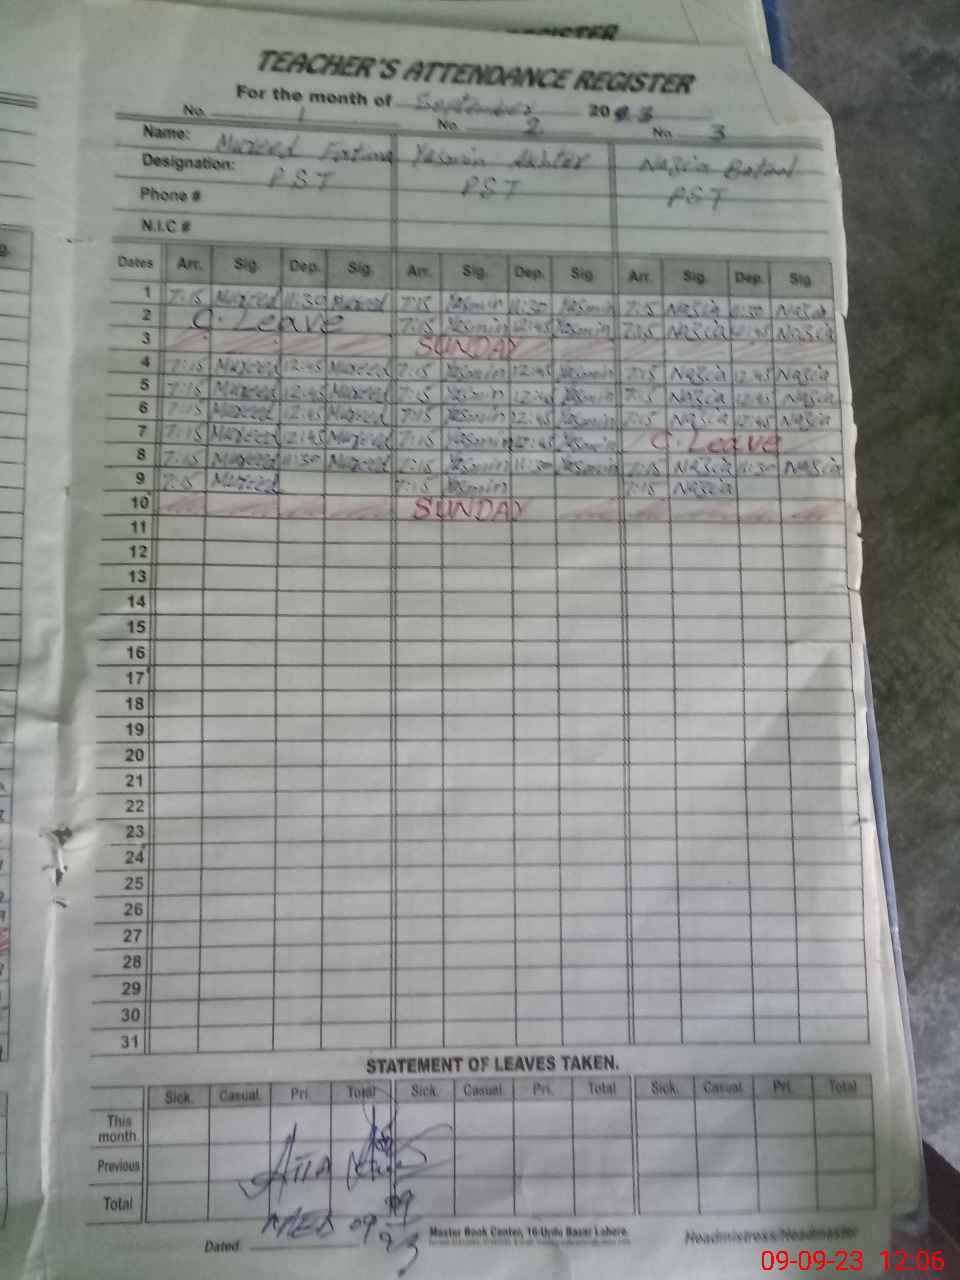 REGISTER
TEACHER'S ATTENDANCE REGISTER
For the month of September 2023
No. 1 No. 2 No. 3
Name: Mureed Fatima Yasmin Akhter Nazia Batool
Designation: PST PST PST
Phone #
N.I.C #
Dates Arr. Sig. Dep. Sig. Arr. Sig. Dep. Sig Arr. Sig. Dep. Sig.
1 7:15 Mureed 11:30 Mureed 7:15 Yasmin 11:30 Yasmin 7:15 Nazia 11:30 Nazia
2 C. Leave 7:15 Yasmin 12:45 Yasmin 7:15 Nazia 12:45 Nazia
3 SUNDAY
4 7:15 Mureed 12:45 Mureed 7:15 Yasmin 12:45 Yasmin 7:15 Nazia 12:45 Nazia
5 7:15 Mureed 12:45 Mureed 7:15 Yasmin 12:45 Yasmin 7:15 Nazia 12:45 Nazia
6 7:15 Mureed 12:45 Mureed 7:15 Yasmin 12:45 Yasmin 7:15 Nazia 12:45 Nazia
7 7:15 Mureed 12:45 Mureed 7:15 Yasmin 12:45 Yasmin C. Leave
8 7:15 Mureed 11:30 Mureed 7:15 Yasmin 11:30 Yasmin 7:15 Nazia 11:30 Nazia
9 7:15 Mureed 7:15 Yasmin 7:15 Nazia
10 SUNDAY
11
12
13
14
15
16
17
18
19
20
21
22
23
24
25
26
27
28
29
30
31
STATEMENT OF LEAVES TAKEN.
Sick. Casual. Pri. Total Sick. Casual. Pri. Total Sick. Casual. Pri. Total
This month.
Previous
Total
Atta
09
09
23
Dated.
Master Book Center, 16-Urdu Bazar Lahore.
Headmistress/Headmaster
09-09-23 12:06